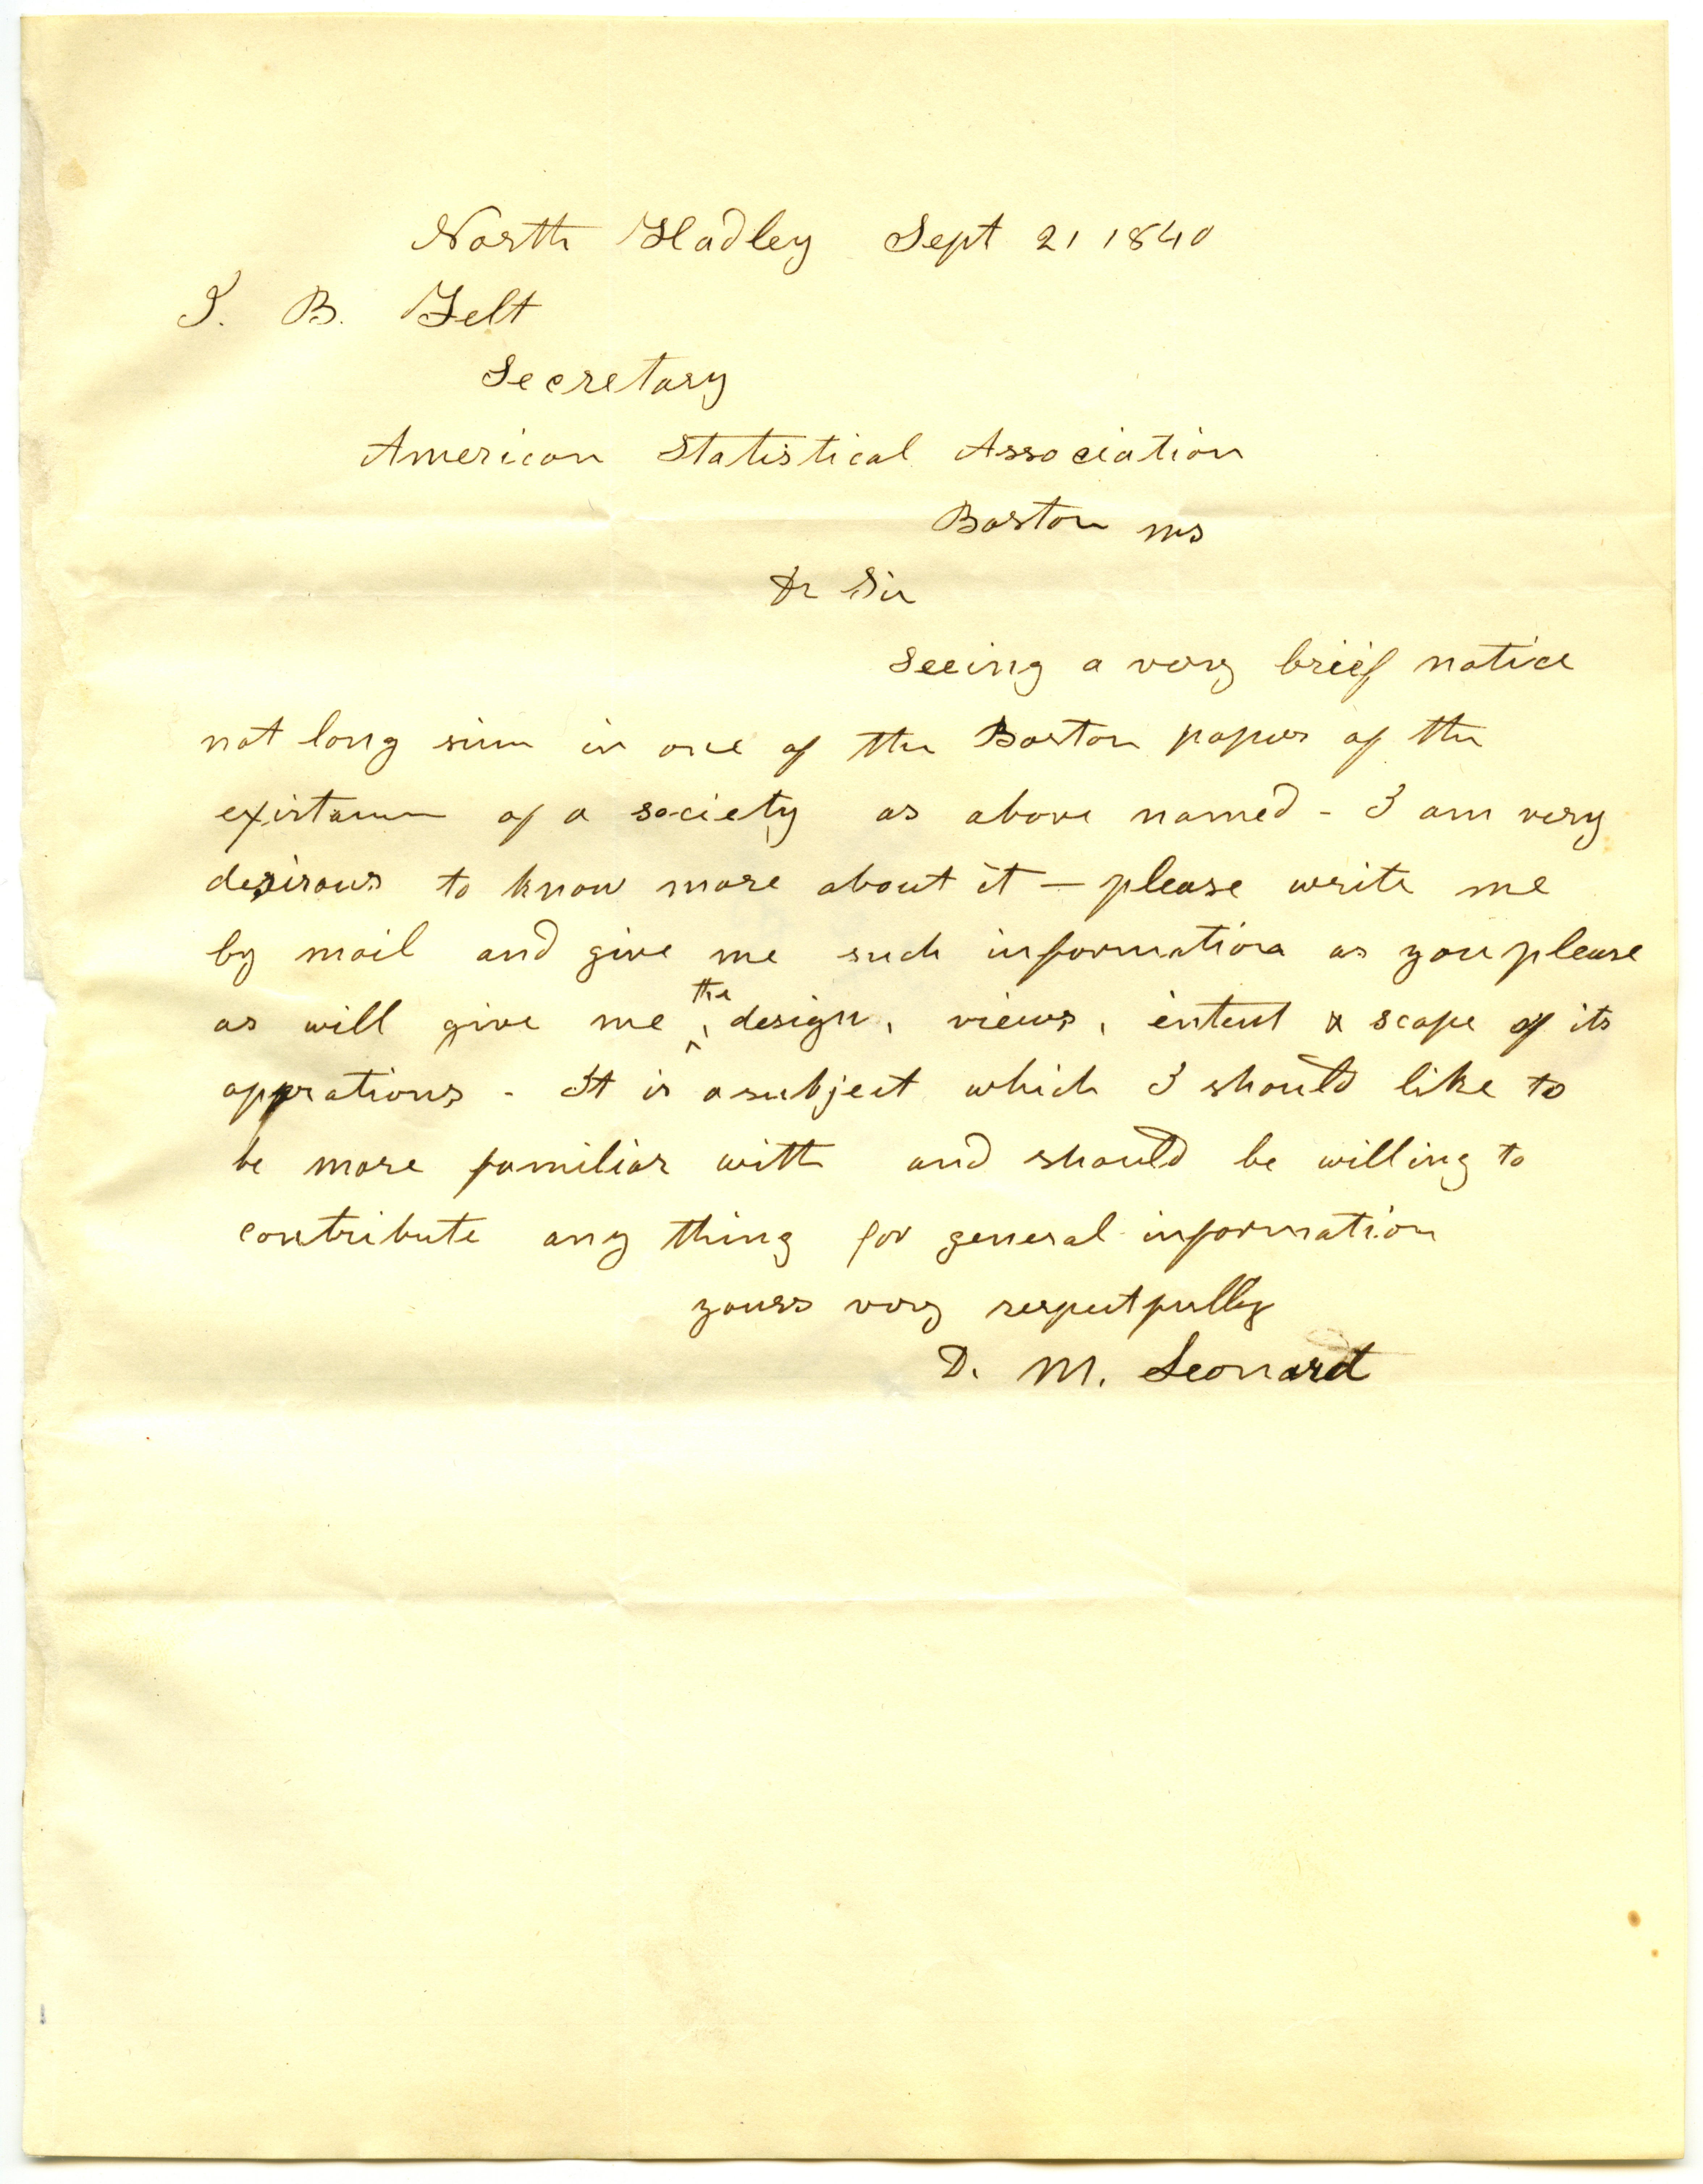 North Hadley Sept 21 1840
J. B. Felt
Secretary
American Statistical Association
Boston ms
Dr Sir
Seeing a very brief notice
not long since in one of the Boston papers of the
existance of a society as above named - I am very
desirous to know more about it — please write me
by mail and give me such information as you please
as will give me the design, views, intent & scope of its
opperations - It is a subject which I should like to
be more familiar with and should be willing to
contribute any thing for general information
yours very respectfully
D. M. Leonard